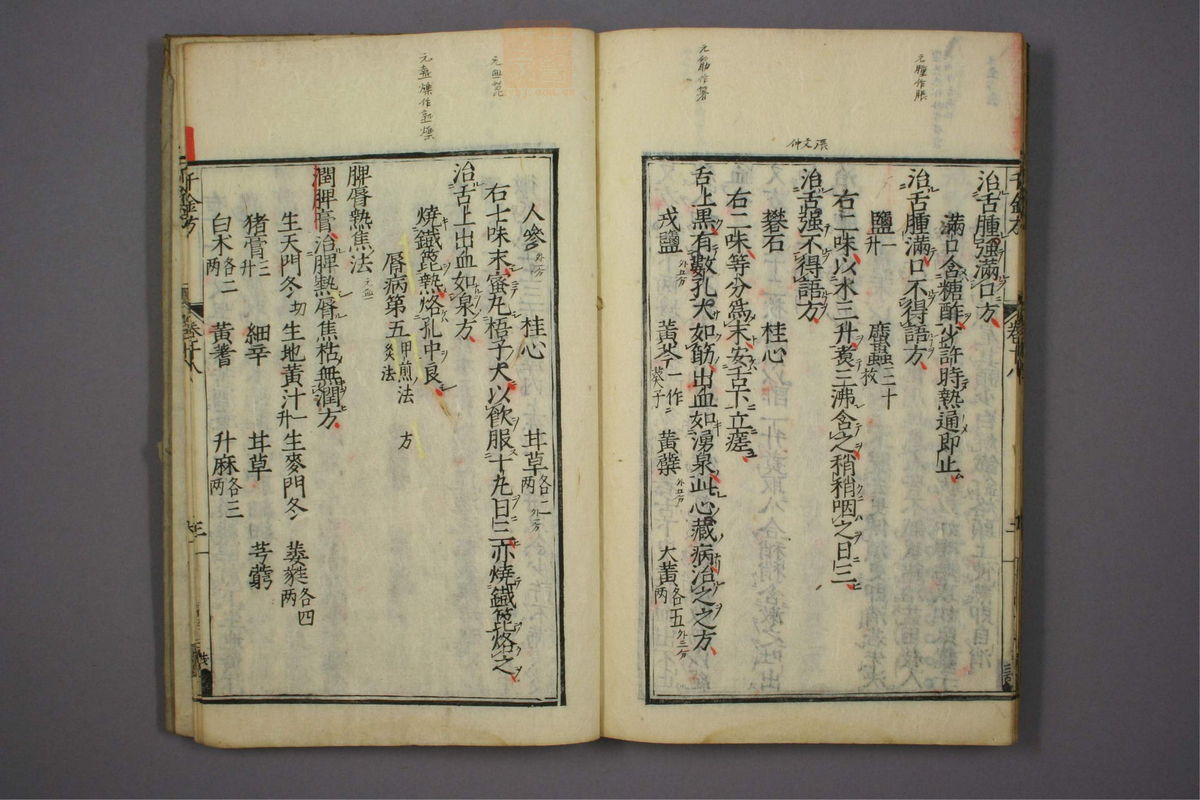 治舌腫強滿口方
滿口含糖酢少許時熱通即止
治舌腫滿口不得語方
鹽一升 䗪蟲三十枚
右二味以水三升煮三沸含之稍稍咽之日三
治舌强不得語方
礬石 桂心
右二味等分爲末安舌下立瘥
舌上黑有數孔大如筯出血如湧泉此心藏病治之之方
戎鹽 黃芩一作葵子 黃蘗 大黃各五兩
人參 桂心 甘草各二兩
右七味末蜜丸梧子大以飲服十丸日三亦燒鐵篦烙之
治舌上出血如泉方
燒鐵篦熱烙孔中良
唇病第五甲煎法 方 灸法
脾脣熱焦法
潤脾膏治脾熱脣焦枯無潤方
生天門冬切 生地黃汁一升 生麥門冬 萎蕤各四兩
猪膏三升 細辛 甘草 芎藭
白木各二兩 黃耆 升麻各三兩
千金方
卷二十八
元腫作脹
元筯作箸
元血篦